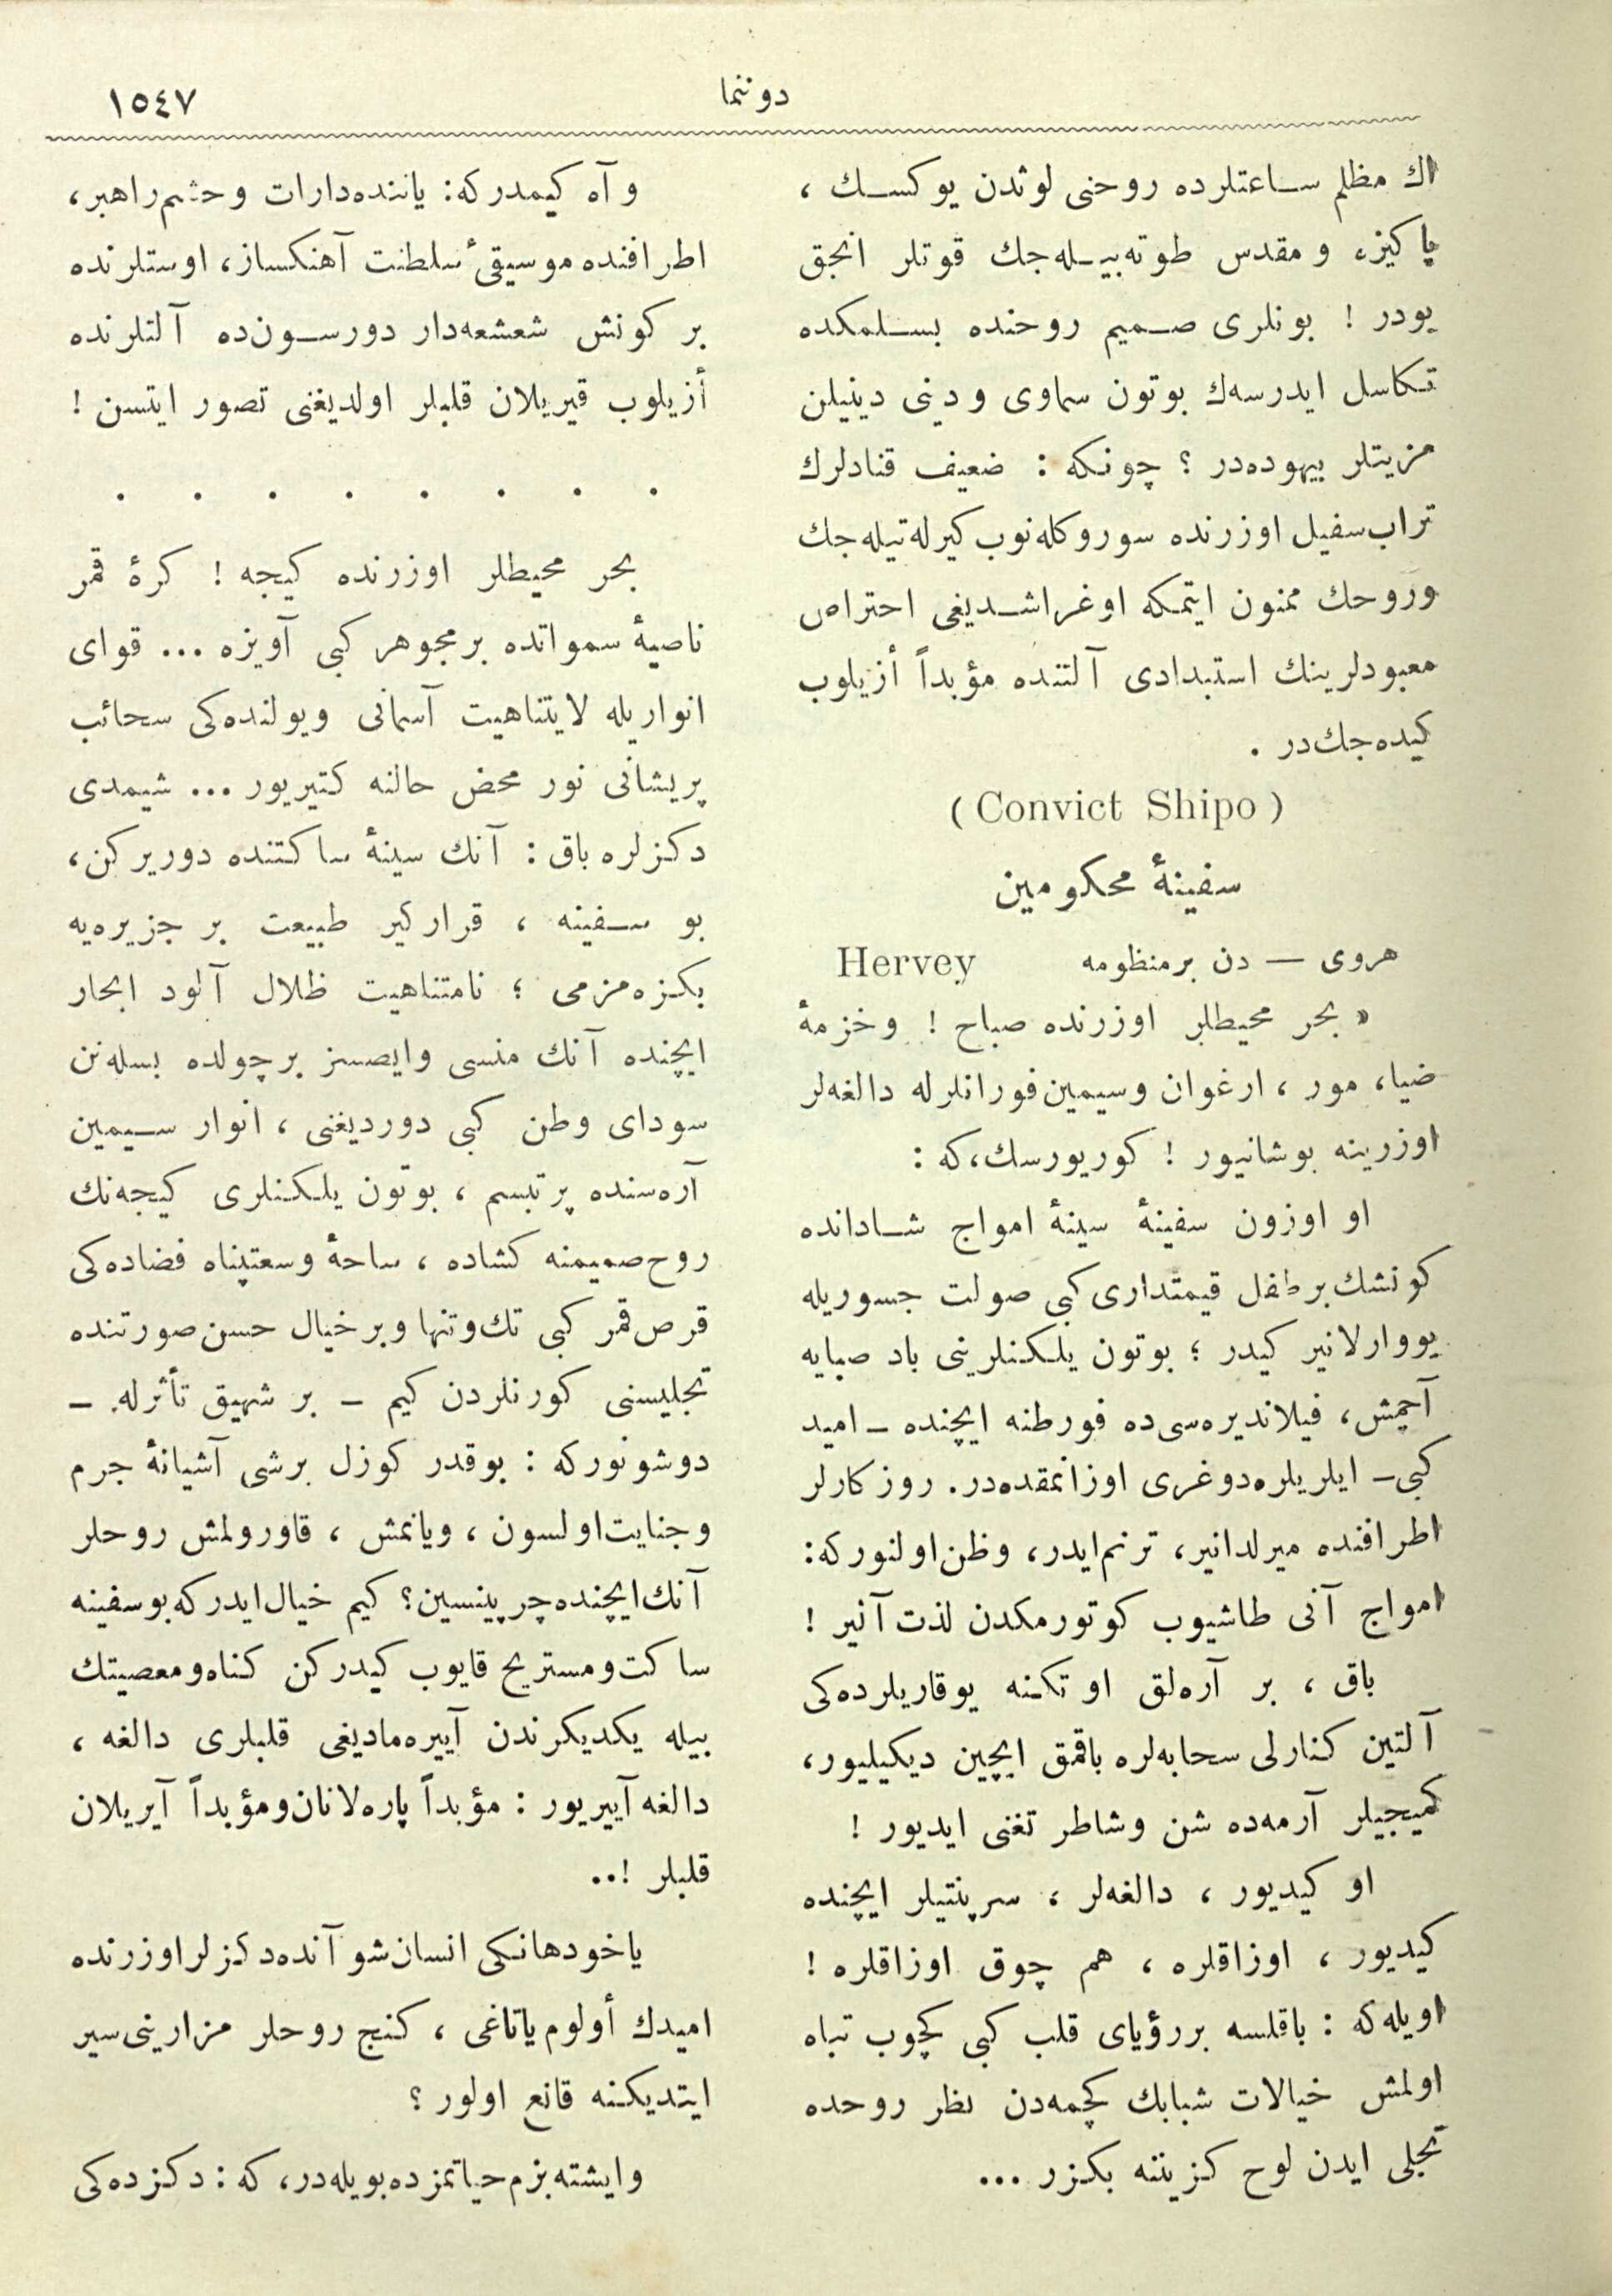 دوننما
١٥٤٧
اك مظلم ساعتلرده روحنی لوثدن يوكسك ،
پاكيز، و مقدس طوته‌بيله‌جك قوتلر انجق
بودر ! بونلری صميم روحنده بسلمكده
تكاسل ايدرسه‌ك بوتون سماوی و دنی دينيلن
مزيتلر بيهوده‌در ؟ چونكه : ضعيف قنادلرك
تراب‌سفيل اوزرنده سوروكله‌نوب كيرله‌تيله‌جك
وروحك ممنون ايتمكه اوغراشديغی احتراص
معبودلرينك استبدادی آلتنده مؤبداً أزيلوب
كيده‌جك‌در .
( Convict Shipo )
سفينۀ محكومين
هروی — دن برمنظومه Hervey
« بحر محيطلر اوزرنده صباح ! وخزمۀ
ضيا، مور ، ارغوان وسيمين‌فورانلرله دالغه‌لر
اوزرينه بوشانيور ! كوريورسك،كه :
او اوزون سفينۀ سينۀ امواج شادانده
كونشك برطفل قيمتداری كبی صولت جسوريله
يووارلانير كيدر ؛ بوتون يلكنلرينی باد صبايه
آچمش، فيلانديره‌سی‌ده فورطنه ايچنده ـ اميد
كبی ـ ايلريلره‌دوغری اوزانمقده‌در. روزكارلر
اطرافنده ميرلدانير، ترنم‌ايدر، وظن‌اولنوركه:
امواج آنی طاشيوب كوتورمكدن لذت آلير !
باق ، بر آره‌لق او تكنه يوقاريلرده‌كی
آلتين كنارلی سحابه‌لره باقمق ايچين ديكيليور،
كميجيلر آرمه‌ده شن وشاطر تغنی ايديور !
او كيديور ، دالغه‌لر ، سرپنتيلر ايچنده
كيديور ، اوزاقلره ، هم چوق اوزاقلره !
اويله‌كه : باقلسه بررؤيای قلب كبی كچوب تباه
اولمش خيالات شبابك كچمه‌دن نظر روحده
تجلی ايدن لوح كزيننه بكزر ...
و آه كيمدركه: ياننده‌دارات وحشم‌راهبر،
اطرافنده موسيقیٔ سلطنت آهنكساز، اوستلرنده
بر كونش شعشعه‌دار دورسون‌ده آلتلرنده
أزيلوب قيريلان قلبلر اولديغنی تصور ايتسن !
. . . . . . . .
بحر محيطلر اوزرنده كيجه ! كرۀ قمر
ناصيۀ سمواتده برمجوهر كبی آويزه ... قوای
انواريله لايتناهيت آسمانی ويولنده‌كی سحائب
پريشانی نور محض حالنه كتيريور ... شيمدی
دكزلره باق : آنك سينۀ ساكتنده دوريركن،
بو سفينه ، قراركير طبيعت بر جزيره‌يه
بكزه‌مزمی ؛ نامتناهيت ظلال آلود ابحار
ايچنده آنك منسی وايصسز برچولده بسله‌نن
سودای وطن كبی دورديغنی ، انوار سيمين
آره‌سنده پرتبسم ، بوتون يلكنلری كيجه‌نك
روح‌صميمنه كشاده ، ساحۀ وسعتپناه فضاده‌كی
قرص‌قمر كبی تك‌وتنها وبرخيال حسن‌صورتنده
تجليسنی كورنلردن كيم ـ بر شهيق تأثرله. ـ
دوشونوركه : بوقدر كوزل برشی آشيانۀ جرم
وجنايت‌اولسون ، ويانمش ، قاورولمش روحلر
آنك‌ايچنده‌چرپينسين؟ كيم خيال‌ايدركه‌بوسفينه
ساكت‌ومستريح قايوب كيدركن كناه‌ومعصيتك
بيله يكديكرندن آييره‌ماديغی قلبلری دالغه ،
دالغه آييريور : مؤبداً پاره‌لانان‌ومؤبداً آيريلان
قلبلر !..
ياخودهانكی انسان‌شو آنده‌دكزلراوزرنده
اميدك أولوم‌ياتاغی ، كنج روحلر مزارينی‌سير
ايتديكنه قانع اولور ؟
وايشته‌بزم‌حياتمزده‌بويله‌در، كه : دكزده‌كی